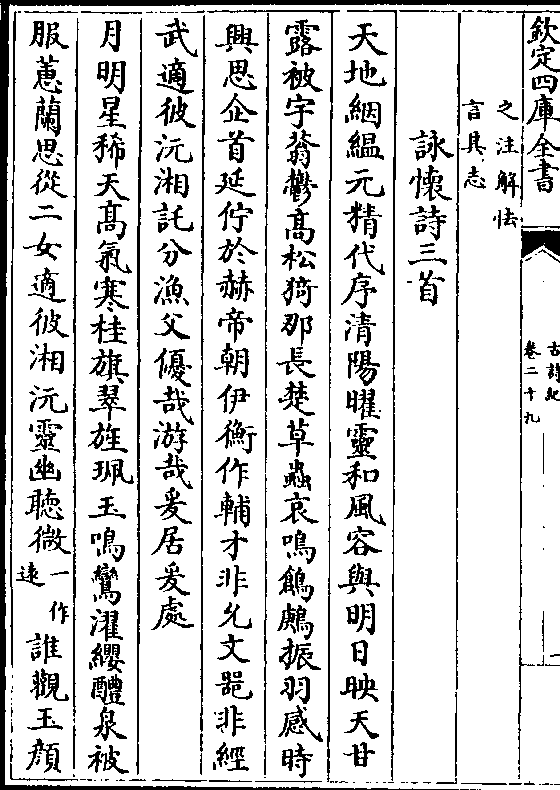 欽定四庫全書
古詩紀
卷二十九
之注解怯
言其志
詠懷詩三首
天地絪縕元精代序清陽曜靈和風容與明日映天甘
露被宇蓊鬱高松猗那長楚草蟲哀鳴鶬鶊振羽感時
興思企首延佇於赫帝朝伊衡作輔才非允文噐非經
武適彼沅湘託分漁父優哉游哉爰居爰處
月明星稀天髙氣寒桂旗翠旌珮玉鳴鸞濯纓醴泉被
服蕙蘭思從二女適彼湘沅靈幽聽微一作逺誰觀玉顔